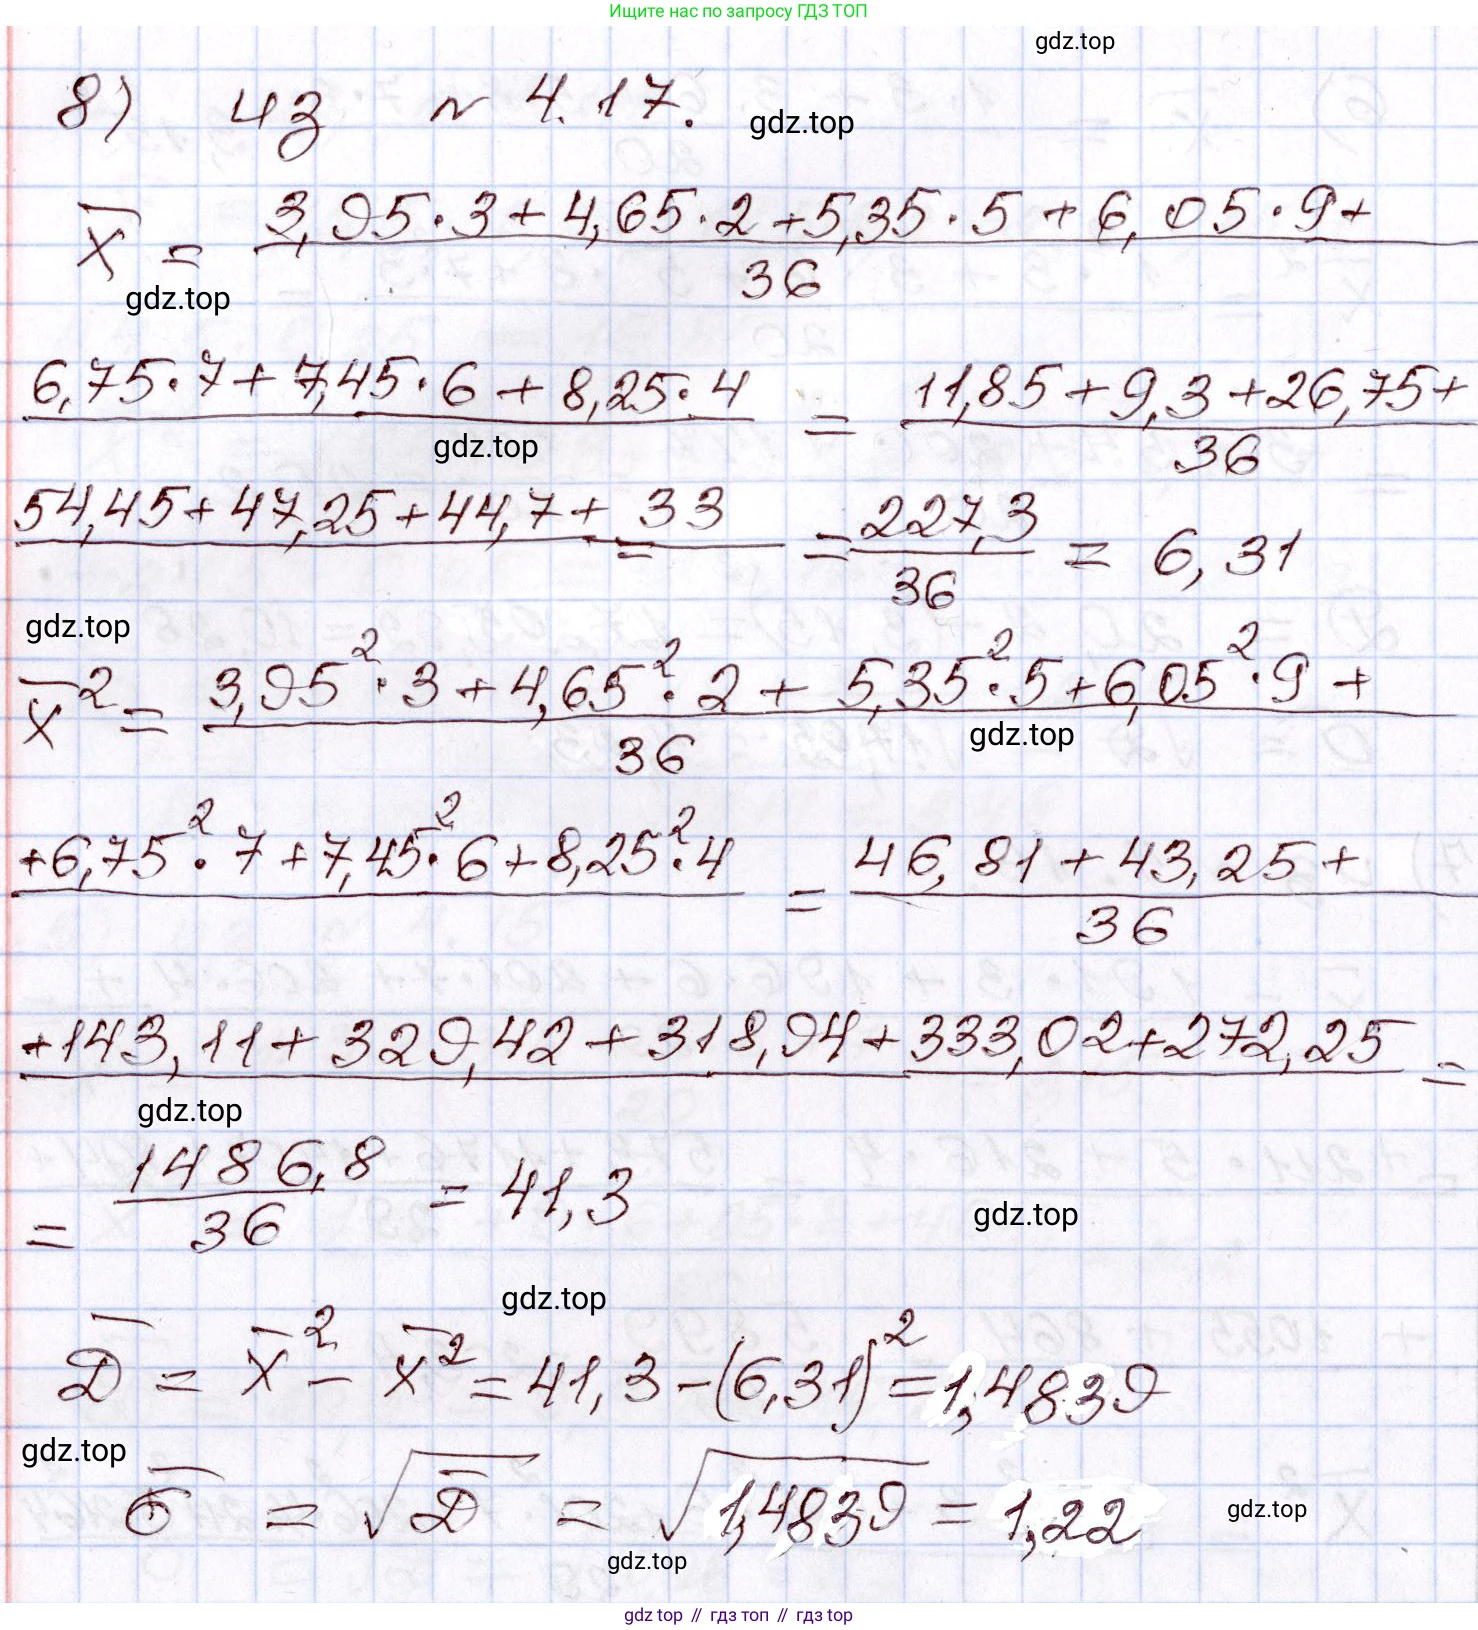 Ищите нас по запросу ГДЗ ТОП
gdz.top
8) из № 4.17.
gdz.top
x̅ = (3,95·3+4,65·2+5,35·5+6,05·9+
36
gdz.top
6,75·7+7,45·6+8,25·4 = 11,85+9,3+26,75+
36
gdz.top
54,45+47,25+44,7+33 = 227,3/36 = 6,31
gdz.top
x̅² = 3,95²·3+4,65²·2+5,35²·5+6,05²·9+
36
gdz.top
+6,75²·7+7,45²·6+8,25²·4 = 46,81+43,25+
36
+143,11+329,42+318,94+333,02+272,25 =
gdz.top
= 1486,8/36 = 41,3
gdz.top
gdz.top
D̅ = x̅² - x̅² = 41,3-(6,31)² = 1,4839
gdz.top
σ̅ = √D̅ = √1,4839 = 1,22
gdz.top
gdz.top
gdz top // гдз топ // гдз top